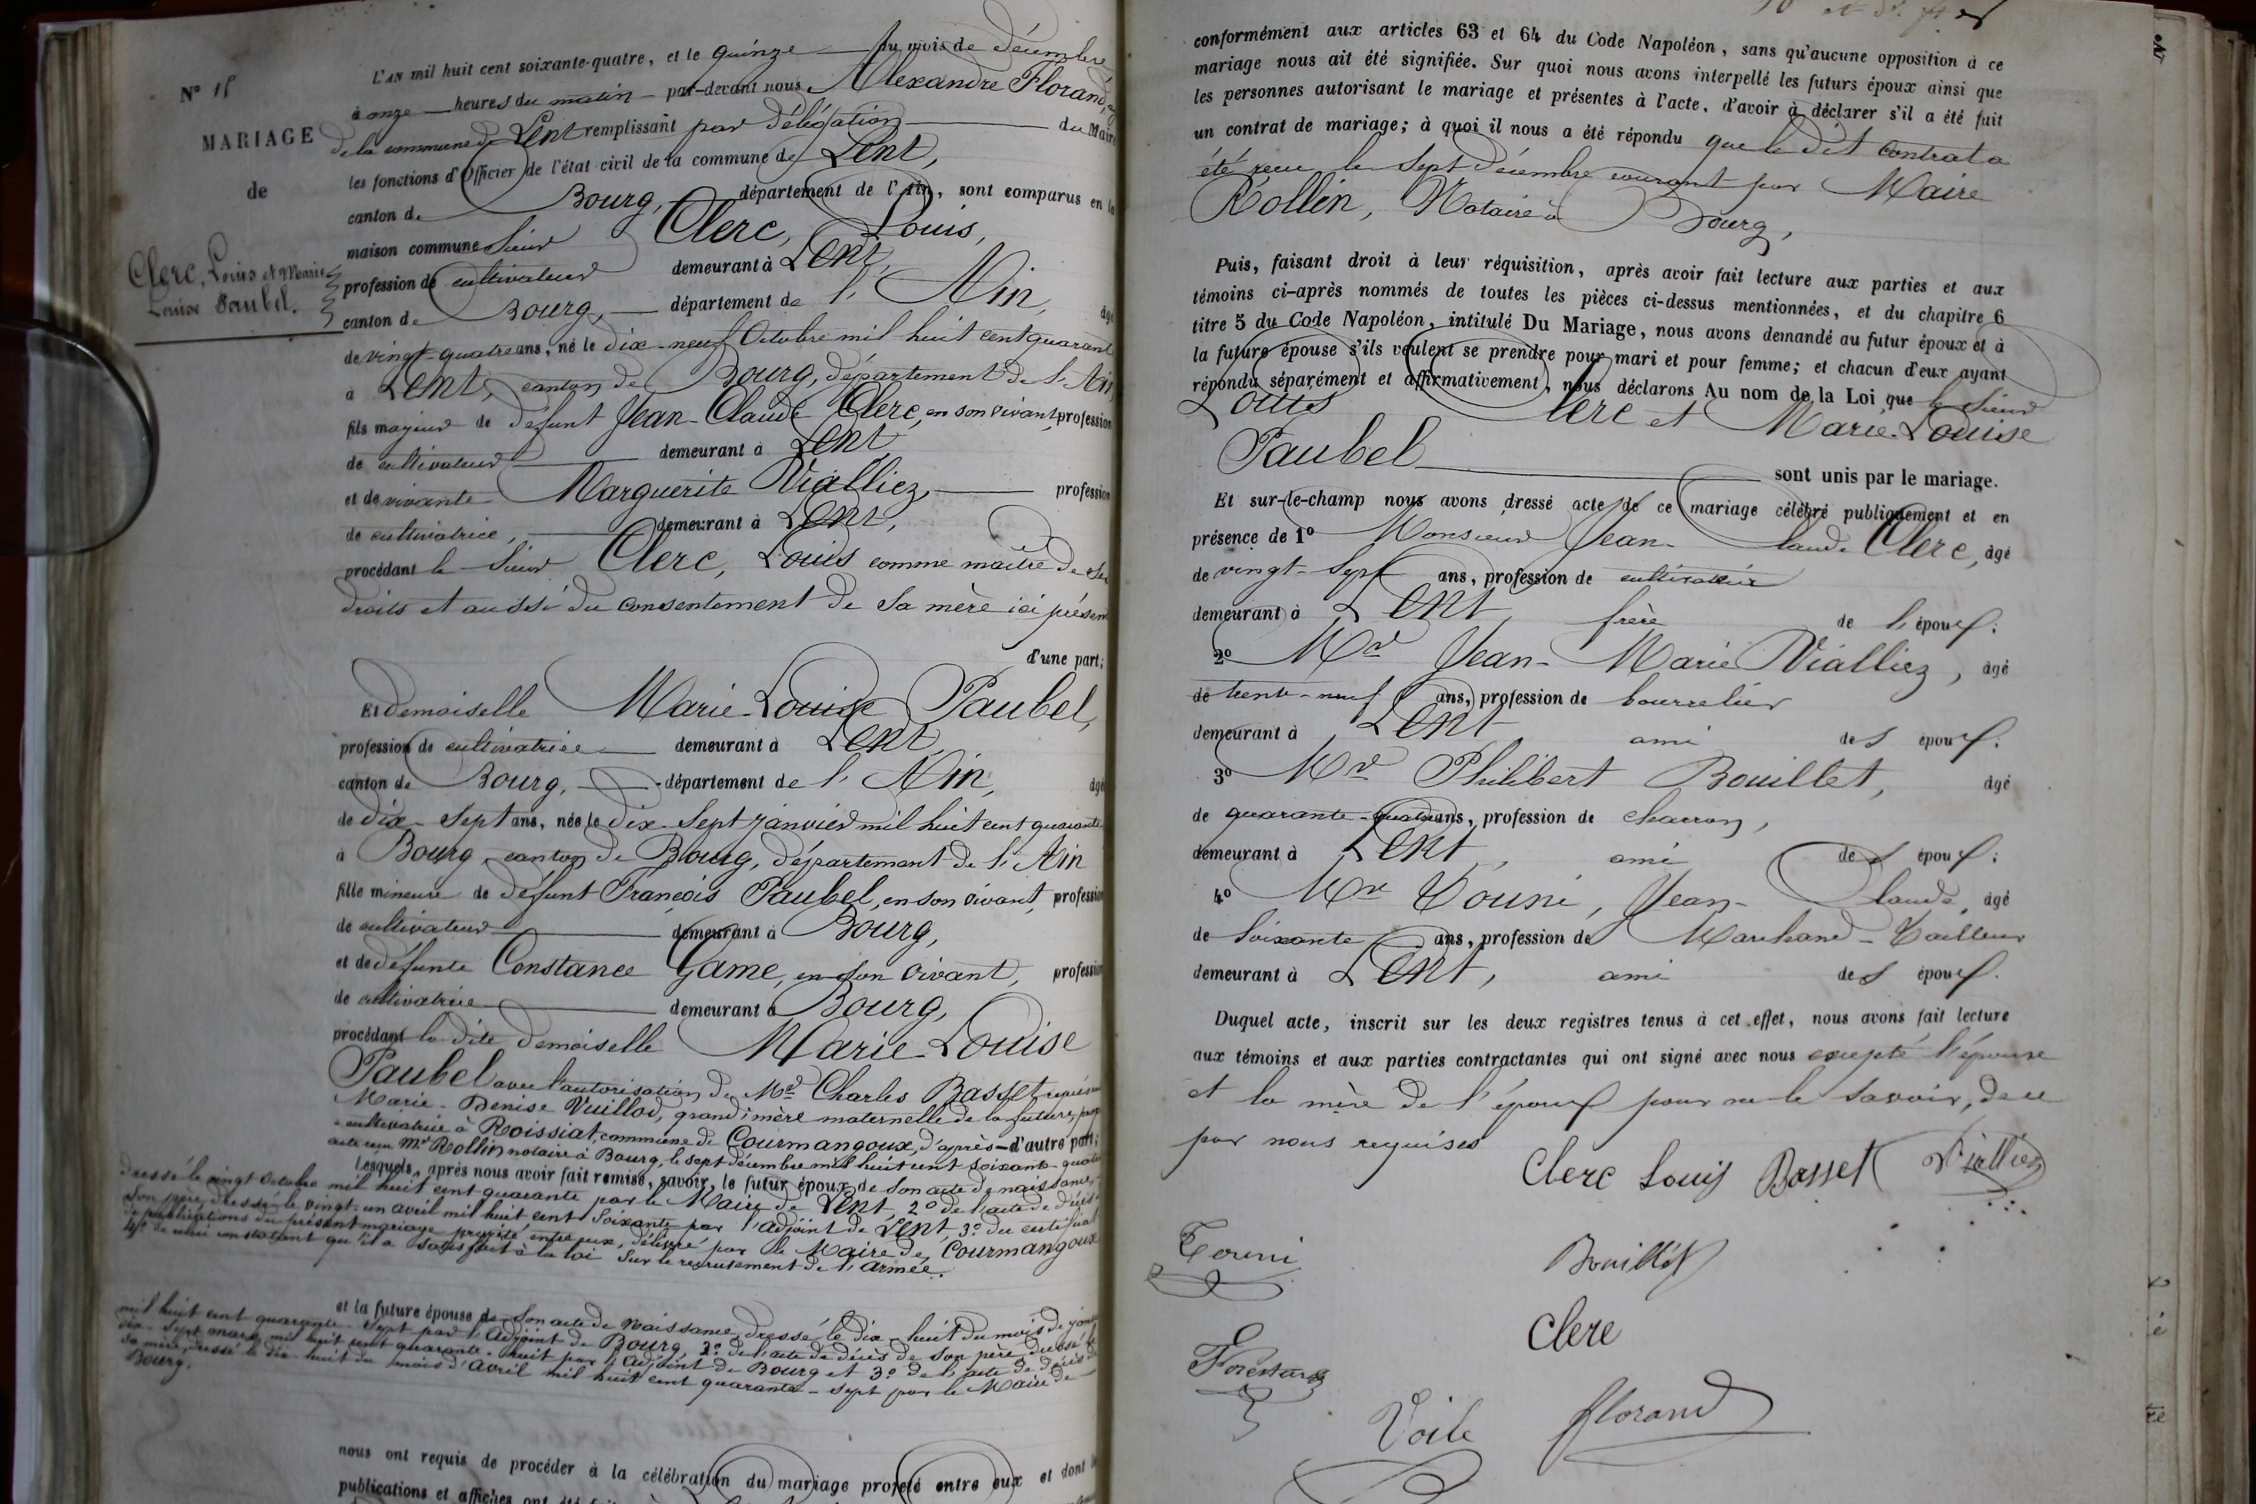 N° 18
MARIAGE
de
Clerc, Louis et Marie
Louise Paubel.
L'AN mil huit cent soixante-quatre, et le quinze du mois de décembre
à onze heures du matin par-devant nous Alexandre Florand,
de la commune de Lent remplissant par délégation du Maire
les fonctions d'Officier de l'état civil de la commune de Lent,
canton de Bourg, département de l'Ain, sont comparus en la
maison commune Sieur Clerc, Louis,
profession de cultivateur demeurant à Lent,
canton de Bourg, département de l'Ain, âgé
de vingt-quatre ans, né le dix-neuf Octobre mil huit cent quarante
à Lent, canton de Bourg, département de l'Ain,
fils majeur de défunt Jean-Claude Clerc, en son vivant, profession
de cultivateur demeurant à Lent
et de vivante Marguerite Vialliez, profession
de cultivatrice, demeurant à Lent,
procédant le Sieur Clerc, Louis comme maître de ses
droits et aussi du consentement de sa mère ici présente
d'une part;
Et demoiselle Marie-Louise Paubel,
profession de cultivatrice demeurant à Lent,
canton de Bourg, département de l'Ain, âgé
de dix-sept ans, née le dix-sept janvier mil huit cent quarante-
à Bourg, canton de Bourg, département de l'Ain
fille mineure de défunt François Paubel, en son vivant, profession
de cultivateur demeurant à Bourg,
et de défunte Constance Game, en son vivant, profession
de cultivatrice demeurant à Bourg,
procédant la dite demoiselle Marie-Louise
Paubel avec l'autorisation de Mr Charles Basset
Marie-Denise Vuillod, grand'mère maternelle de la future,
cultivatrice à Roissiat, commune de Courmangoux, d'après d'autre part;
acte reçu Mr Rollin notaire à Bourg, le sept décembre mil huit cent soixante-quatre
Lesquels, après nous avoir fait remise, savoir, le futur époux de Son acte de naissance,
dressé le vingt Octobre mil huit cent quarante par le Maire de Lent, 2° de l'acte de décès de
son père, dressé le vingt-un avril mil huit cent soixante par l'adjoint de Lent, 3° du certificat
de publications du présent mariage projeté entre eux, délivré par le Maire de Courmangoux
4° de celui constatant qu'il a satisfait à la loi sur le recrutement de l'armée.
et la future épouse de Son acte de naissance, dressé le dix-huit du mois de janvier
mil huit cent quarante-sept par l'Adjoint de Bourg, 2° de l'acte de décès de son père, dressé le
dix-sept mars mil huit cent quarante-huit par l'Adjoint de Bourg et 3° de l'acte de décès de
sa mère, dressé le dix-huit du mois d'avril mil huit cent quarante-sept par le Maire de
Bourg.
nous ont requis de procéder à la célébration du mariage projeté entre eux et dont
publications et affiches ont été
conformément aux articles 63 et 64 du Code Napoléon, sans qu'aucune opposition à ce
mariage nous ait été signifiée. Sur quoi nous avons interpellé les futurs époux ainsi que
les personnes autorisant le mariage et présentes à l'acte, d'avoir à déclarer s'il a été fait
un contrat de mariage; à quoi il nous a été répondu que le dit Contrat a
été reçu le Sept décembre courant par Maire
Rollin, Notaire à Bourg,
Puis, faisant droit à leur réquisition, après avoir fait lecture aux parties et aux
témoins ci-après nommés de toutes les pièces ci-dessus mentionnées, et du chapitre 6
titre 5 du Code Napoléon, intitulé Du Mariage, nous avons demandé au futur époux et à
la future épouse s'ils veulent se prendre pour mari et pour femme; et chacun d'eux ayant
répondu séparément et affirmativement, nous déclarons Au nom de la Loi que le Sieur
Louis Clerc et Marie-Louise
Paubel sont unis par le mariage.
Et sur-le-champ nous avons dressé acte de ce mariage célébré publiquement et en
présence de 1° Monsieur Jean-Claude Clerc, âgé
de vingt-sept ans, profession de cultivateur
demeurant à Lent, frère de l'époux.
2° Mr Jean-Marie Vialliez, âgé
de trente-neuf ans, profession de bourrelier
demeurant à Lent ami des époux.
3° Mr Philibert Bouillet, âgé
de quarante-quatre ans, profession de charron,
demeurant à Lent, ami des époux;
4° Mr Touni, Jean-Claude, âgé
de soixante ans, profession de Marchand-Tailleur
demeurant à Lent, ami des époux.
Duquel acte, inscrit sur les deux registres tenus à cet effet, nous avons fait lecture
aux témoins et aux parties contractantes qui ont signé avec nous excepté l'épouse
et la mère de l'époux pour ne le savoir, de ce
par nous requises
Clerc Louis Basset Vialliez
Touni
Bouillet
Clerc
Florand